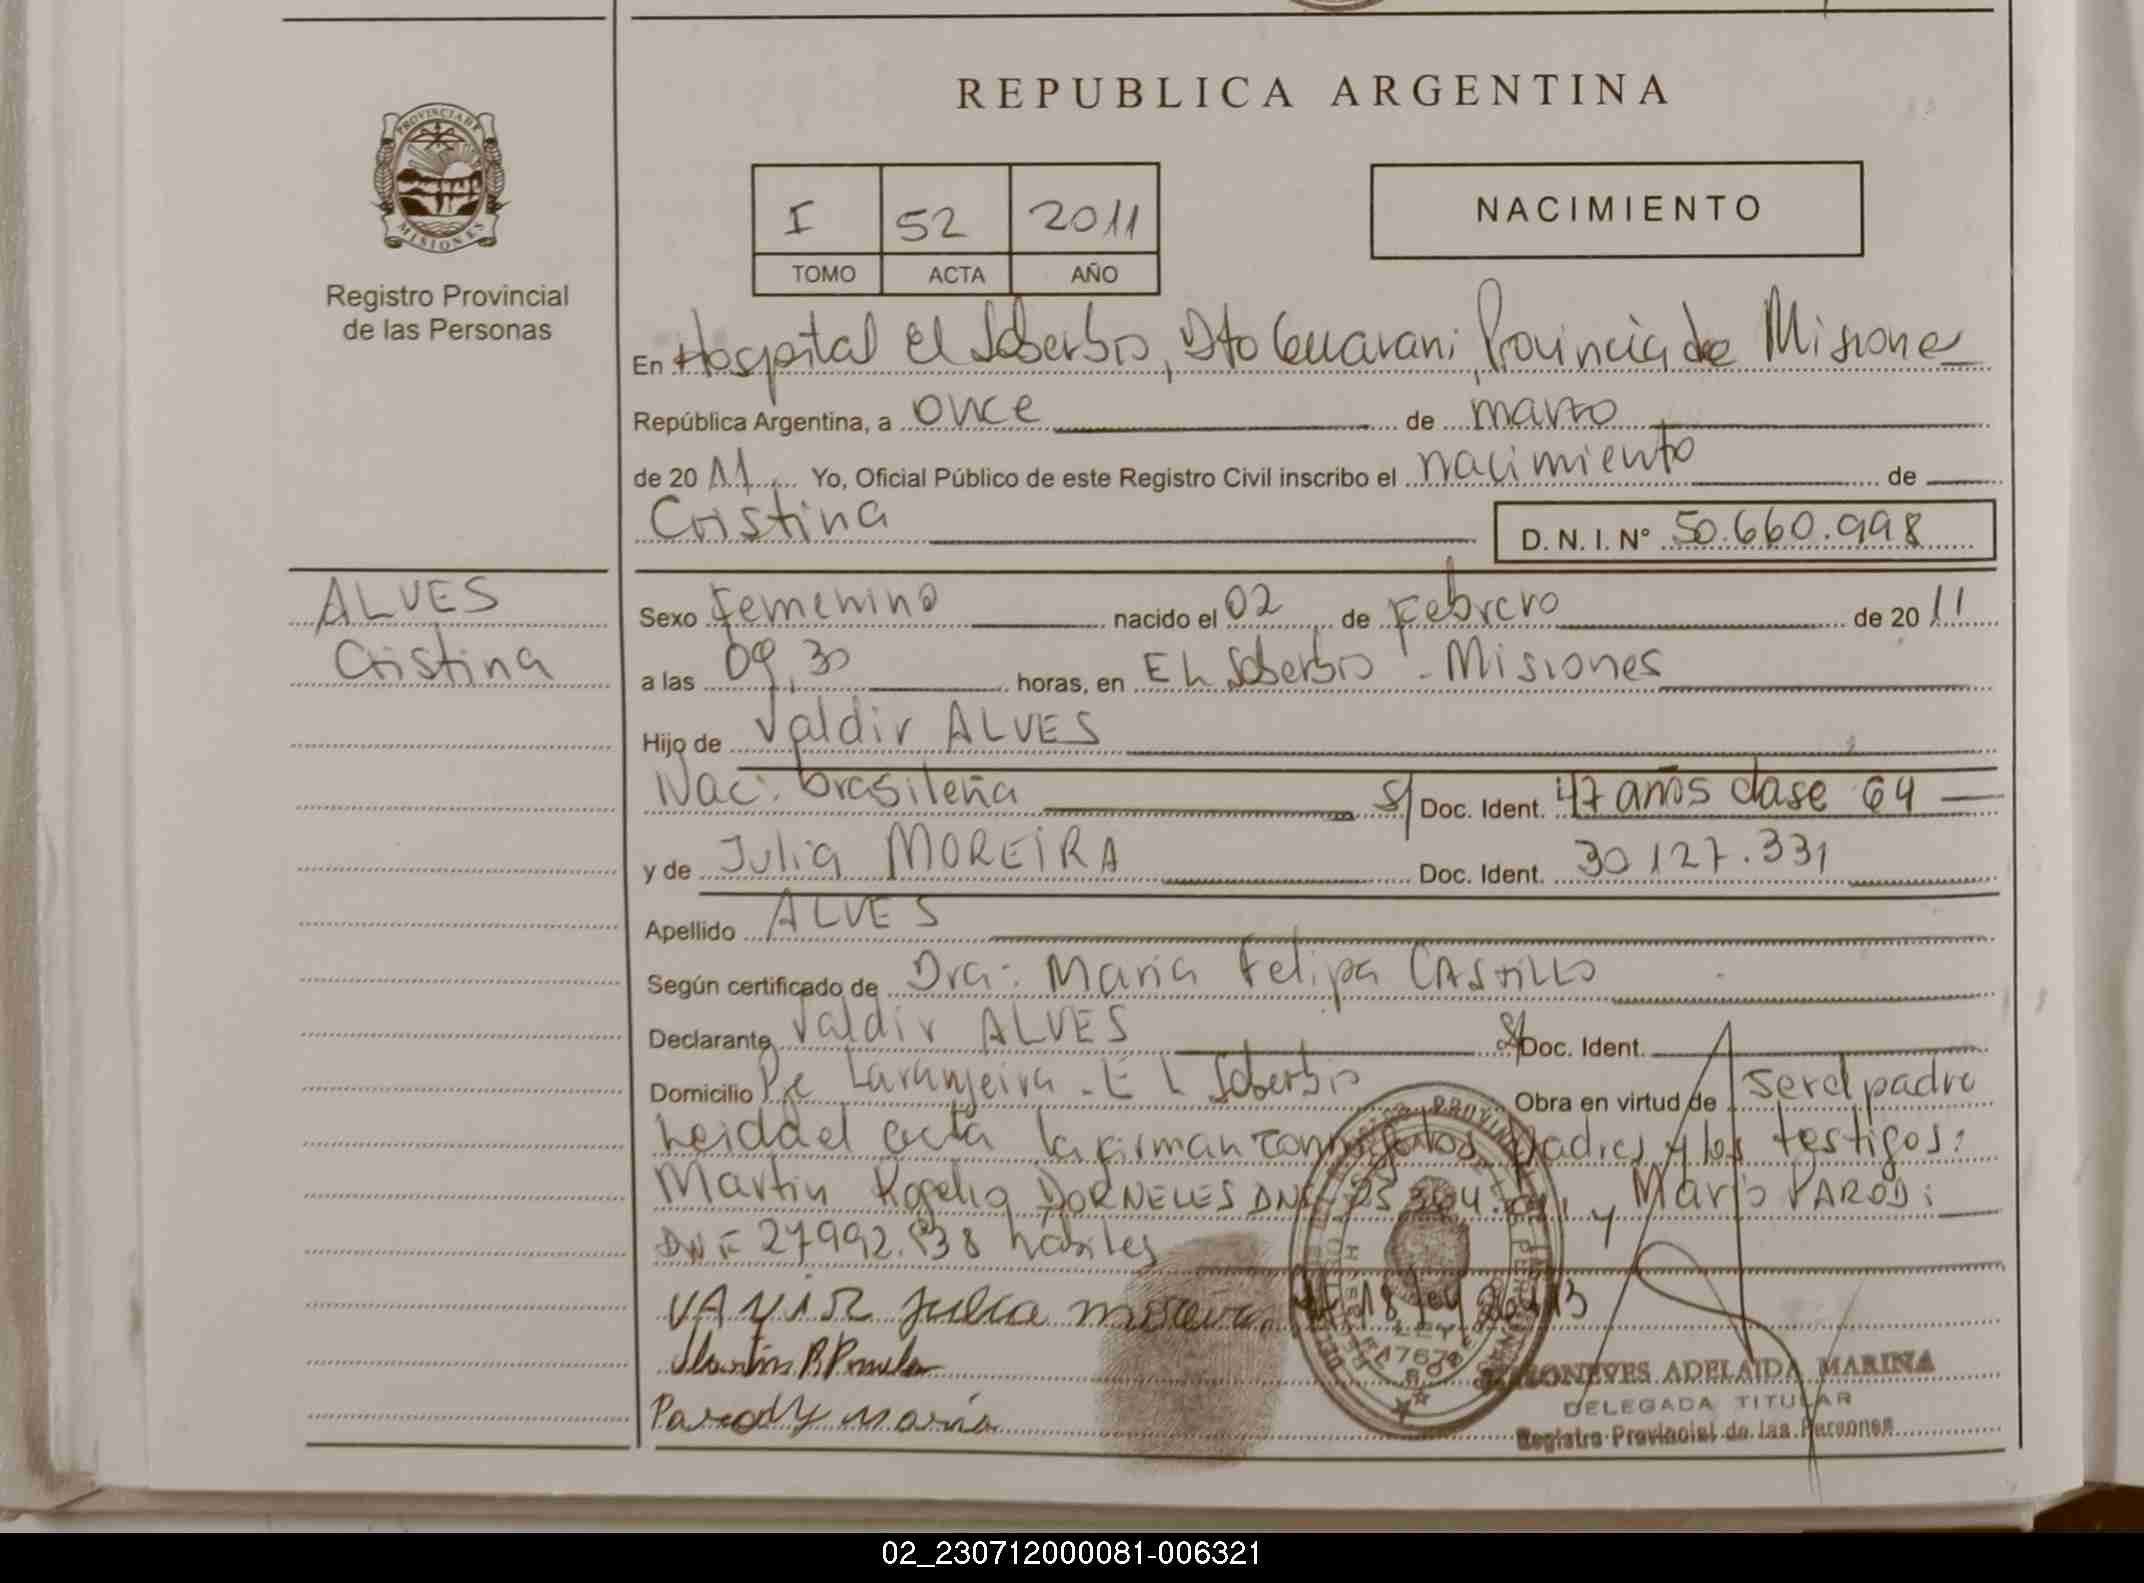 REPUBLICA ARGENTINA
PROVINCIA DE
MISIONES
Registro Provincial
de las Personas
I 52 2011
TOMO ACTA AÑO
NACIMIENTO
En Hospital El Soberbio, Dto Guarani, Provincia de Misiones
República Argentina, a once de marzo
de 2011 Yo, Oficial Público de este Registro Civil inscribo el nacimiento de
Cristina D. N. I. N° 50.660.998
ALVES
Cristina
Sexo Femenino nacido el 02 de Febrero de 2011
a las 09,30 horas, en EL Soberbio - Misiones
Hijo de Valdir ALVES
Nac: brasileña S/ Doc. Ident. 47 años clase 64
y de Julia MOREIRA Doc. Ident. 30 127.331
Apellido ALVES
Según certificado de Dra: Maria Felipa CASTILLO
Declarante Valdir ALVES S/ Doc. Ident.
Domicilio Pje Laranjeira - EL Soberbio Obra en virtud de ser el padre
Leida el acta la firman conmigo los padres y los testigos:
Martin Rogelio DORNELES DNI y Mario PARODi
DNI 27992.838 habiles
VANIR Julia moreira
Martin R
Parody Mario
ADELAIDA MARINA
DELEGADA TITULAR
Registro Provincial de las Personas
02_230712000081-006321